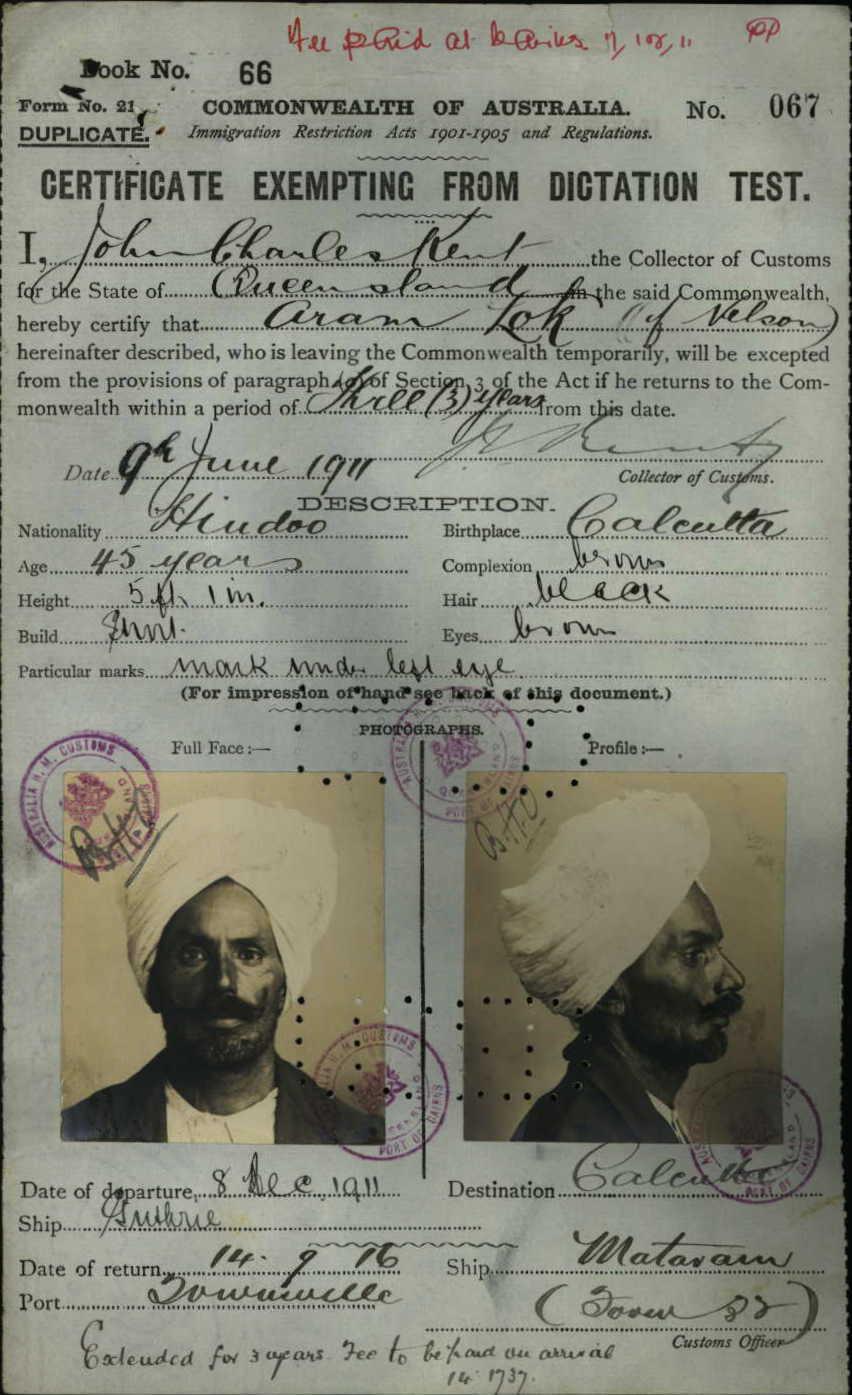 Fee paid at Cairns
Book No. 66
Form No. 21 COMMONWEALTH OF AUSTRALIA. No. 067
DUPLICATE. Immigration Restriction Acts 1901-1905 and Regulations.
CERTIFICATE EXEMPTING FROM DICTATION TEST.
I, John Charles Kent the Collector of Customs
for the State of Queensland in the said Commonwealth,
hereby certify that Aram Lok (of Nelson)
hereinafter described, who is leaving the Commonwealth temporarily, will be excepted
from the provisions of paragraph (a) of Section 3 of the Act if he returns to the Com-
monwealth within a period of Three (3) years from this date.
Date 9th June 1911 Collector of Customs.
DESCRIPTION.
Nationality Hindoo Birthplace Calcutta
Age 45 years Complexion brown
Height 5 ft 1 in. Hair black
Build Eyes brown
Particular marks mark under left eye
(For impression of hand see back of this document.)
PHOTOGRAPHS.
Full Face :— Profile :—
AUSTRALIA H. M. CUSTOMS
QUEENSLAND
PORT OF CAIRNS
Date of departure 8 Dec 1911 Destination Calcutta
Ship Guthrie
Date of return 14. 9 16 Ship Mataram
Port Townsville
Customs Officer
Extended for 3 years. Fee to be paid on arrival
14. 1737.